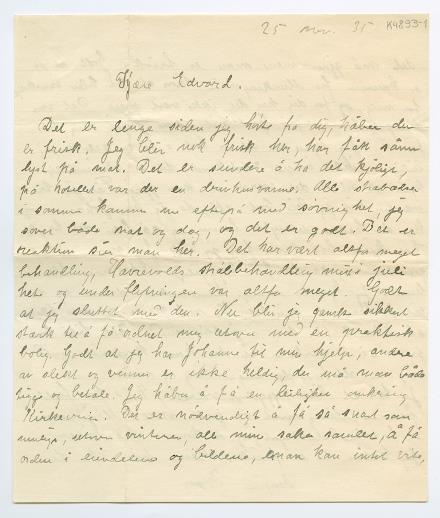 25 nov. 35 K4893-1
Kjære Edvard.
Det er lenge siden jeg hørte fra dig, håber du
er frisk. Jeg blir nok frisk her, har fått sånn
lyst på mat. Det er sundere å ha det kjølig,
på hotellet var der en drivhusvarme. Alle
i samme kamme nu efterpå med søvnighet, jeg
sover både nat og dag, og det er godt. Det er
reaktion sier man her. Det har vært altfor meget
behandling, strålbehandling midt i juli
hete og under flytningen var altfor meget. Godt
at jeg sluttet med den. Nu blir jeg ganske sikkert
stærk til å få ordnet mig utover med en praktisk
bolig. Godt at jeg har Johanne til min hjelp, andre
av slekt og venner er ikke heldig, der må man både
og betale. Jeg håber å få en leilighet omkring
Kirkeveien. Det er nødvendigt å få så snart som
mulig, utover vinteren, alle mine saker samlet, å få
orden i eiendelene og billedene, man kan intet vite,